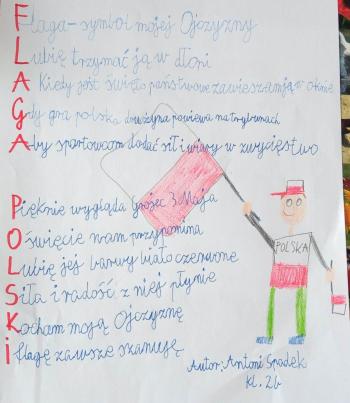 Flaga - symbol mojej Ojczyzny
Lubię trzymać ją w dłoni
A Kiedy jest święto państwowe zawieszam ją w oknie
Gdy gra polska drużyna powiewa na trybunach
Aby sportowcom dodać sił i wiary w zwycięstwo
Pięknie wygląda Grójec 3 Maja
O święcie nam przypomina
Lubię jej barwy biało czerwone
Siła i radość z niej płynie
Kocham moją Ojczyznę
i flagę zawsze szanuję
POLSKA
Autor: Antoni Spadek
kl. 2b